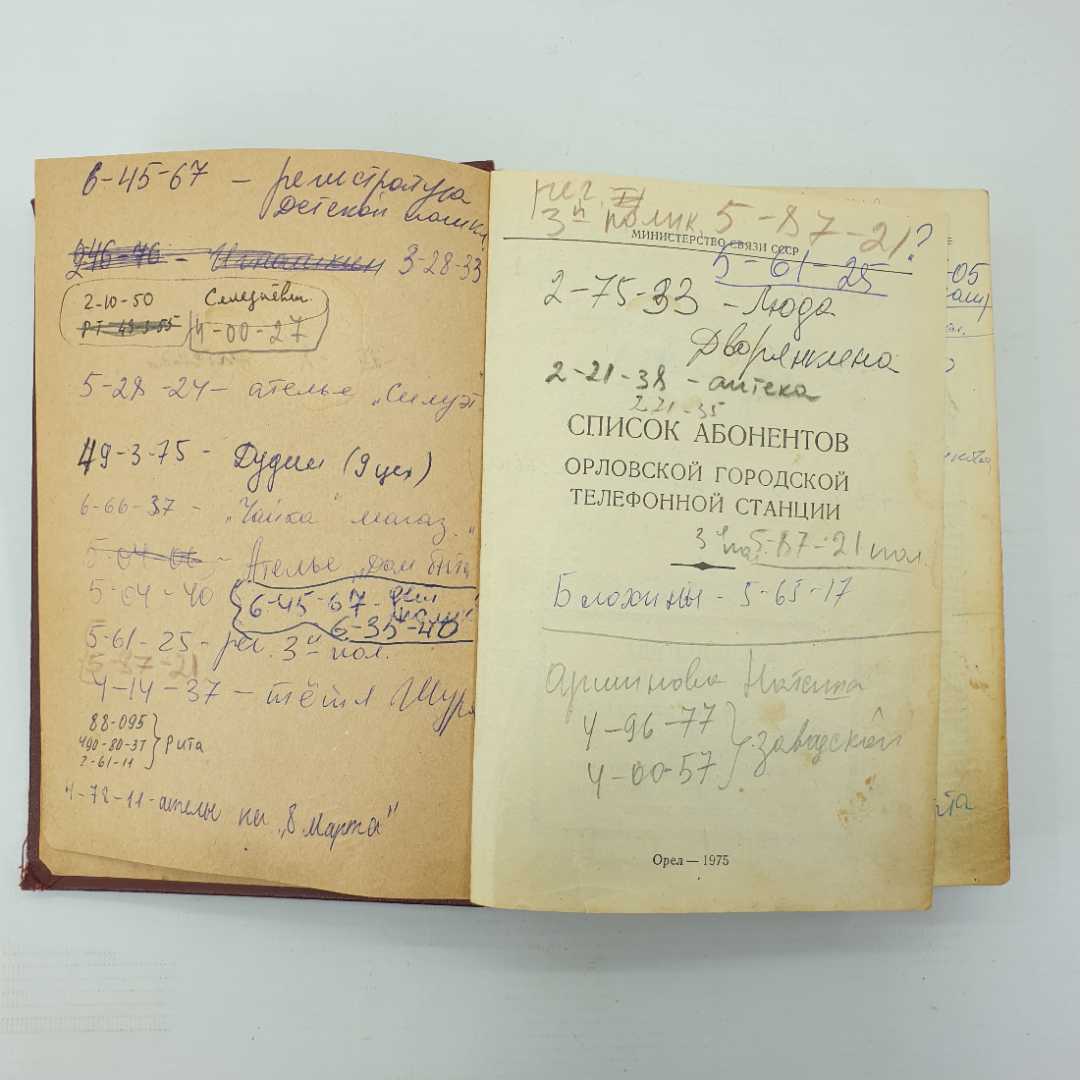 6-45-67 - регистратура
Детской
3-28-33
2-10-50
4-00-27
5-28-24- ателье „Силуэт"
49-3-75- Дудин (9 цех)
6-66-37 - „Чайка" магаз.
Ателье „Дом быта
5-04-40
6-45-67-
6-35-40
5-61-25- рег. 3й пол.
5-87-21
4-14-37 - тётя Шура
88-095
490-80-37 Рита
2-61-11
4-78-11- ателье на „8 Марта"
рег.
3й полик. 5-87-21?
МИНИСТЕРСТВО СВЯЗИ СССР
5-61-25
2-75-33 - Люда
2-21-38 - аптека
2 21-35
СПИСОК АБОНЕНТОВ
ОРЛОВСКОЙ ГОРОДСКОЙ
ТЕЛЕФОННОЙ СТАНЦИИ
5-87-21 пол.
Блохины - 5-65-17
4-96-77
Заводской
4-00-57
Орел — 1975
-05